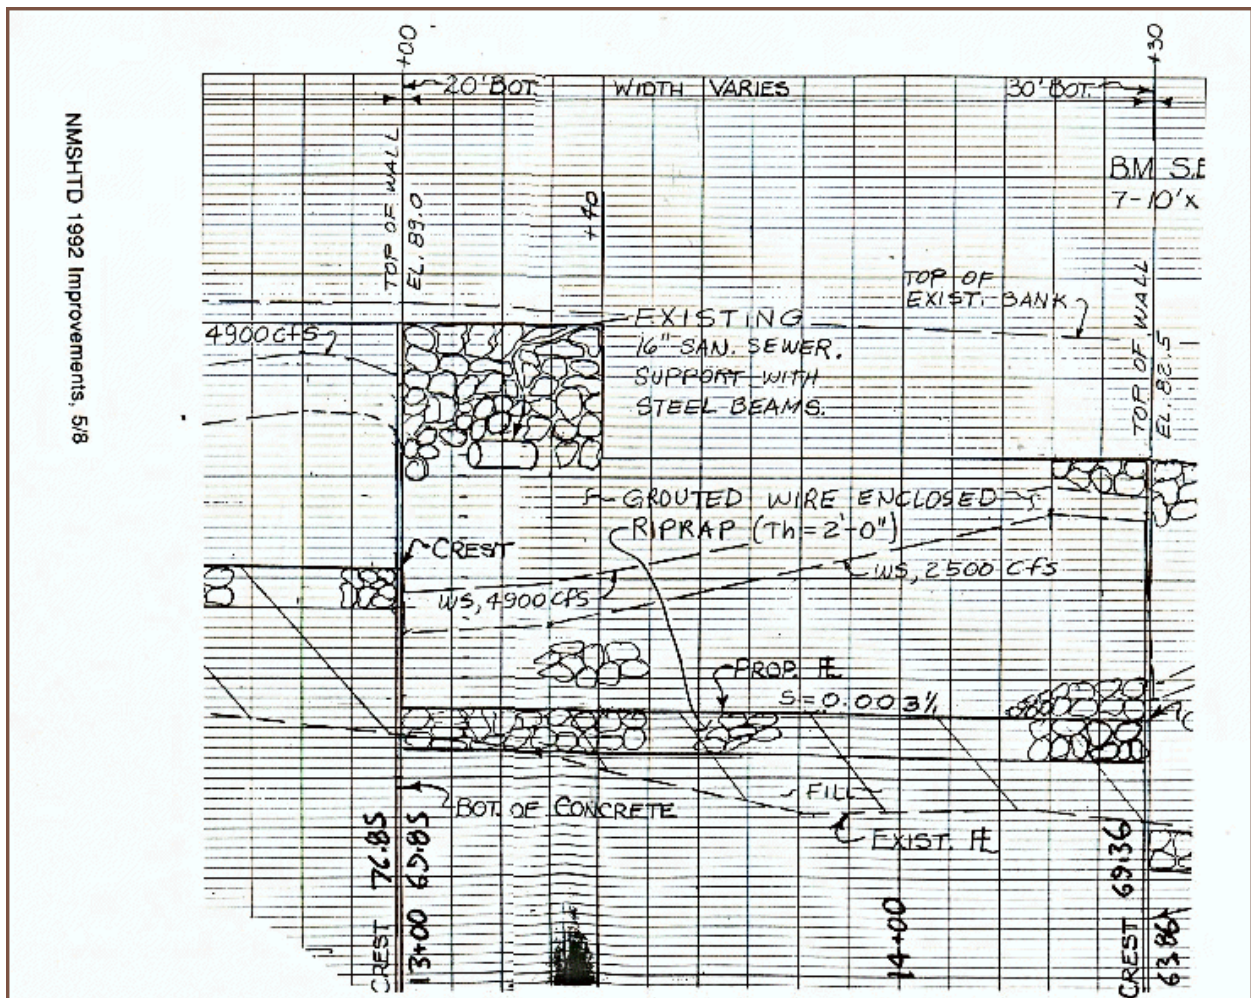 NMSHTD 1992 Improvements, 5/8
+00
+30
20' BOT.
WIDTH VARIES
30' BOT.
TOP OF WALL
EL. 89.0
+40
B.M. S.E
7-10'X
TOP OF
EXIST. BANK
TOP OF WALL
EL. 82.5
4900 CFS
EXISTING
16" SAN. SEWER.
SUPPORT WITH
STEEL BEAMS.
GROUTED WIRE ENCLOSED
RIPRAP (Th = 2'-0")
CREST
WS, 2500 CFS
WS, 4900 CFS
PROP. FL
S=0.003 1/1
FILL
BOT. OF CONCRETE
EXIST. FL
CREST 76.85
13+00 69.85
14+00
CREST 69.36
63.86